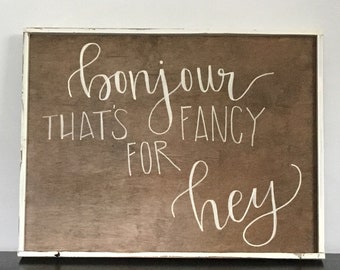 bonjour
THAT'S FANCY
FOR
hey